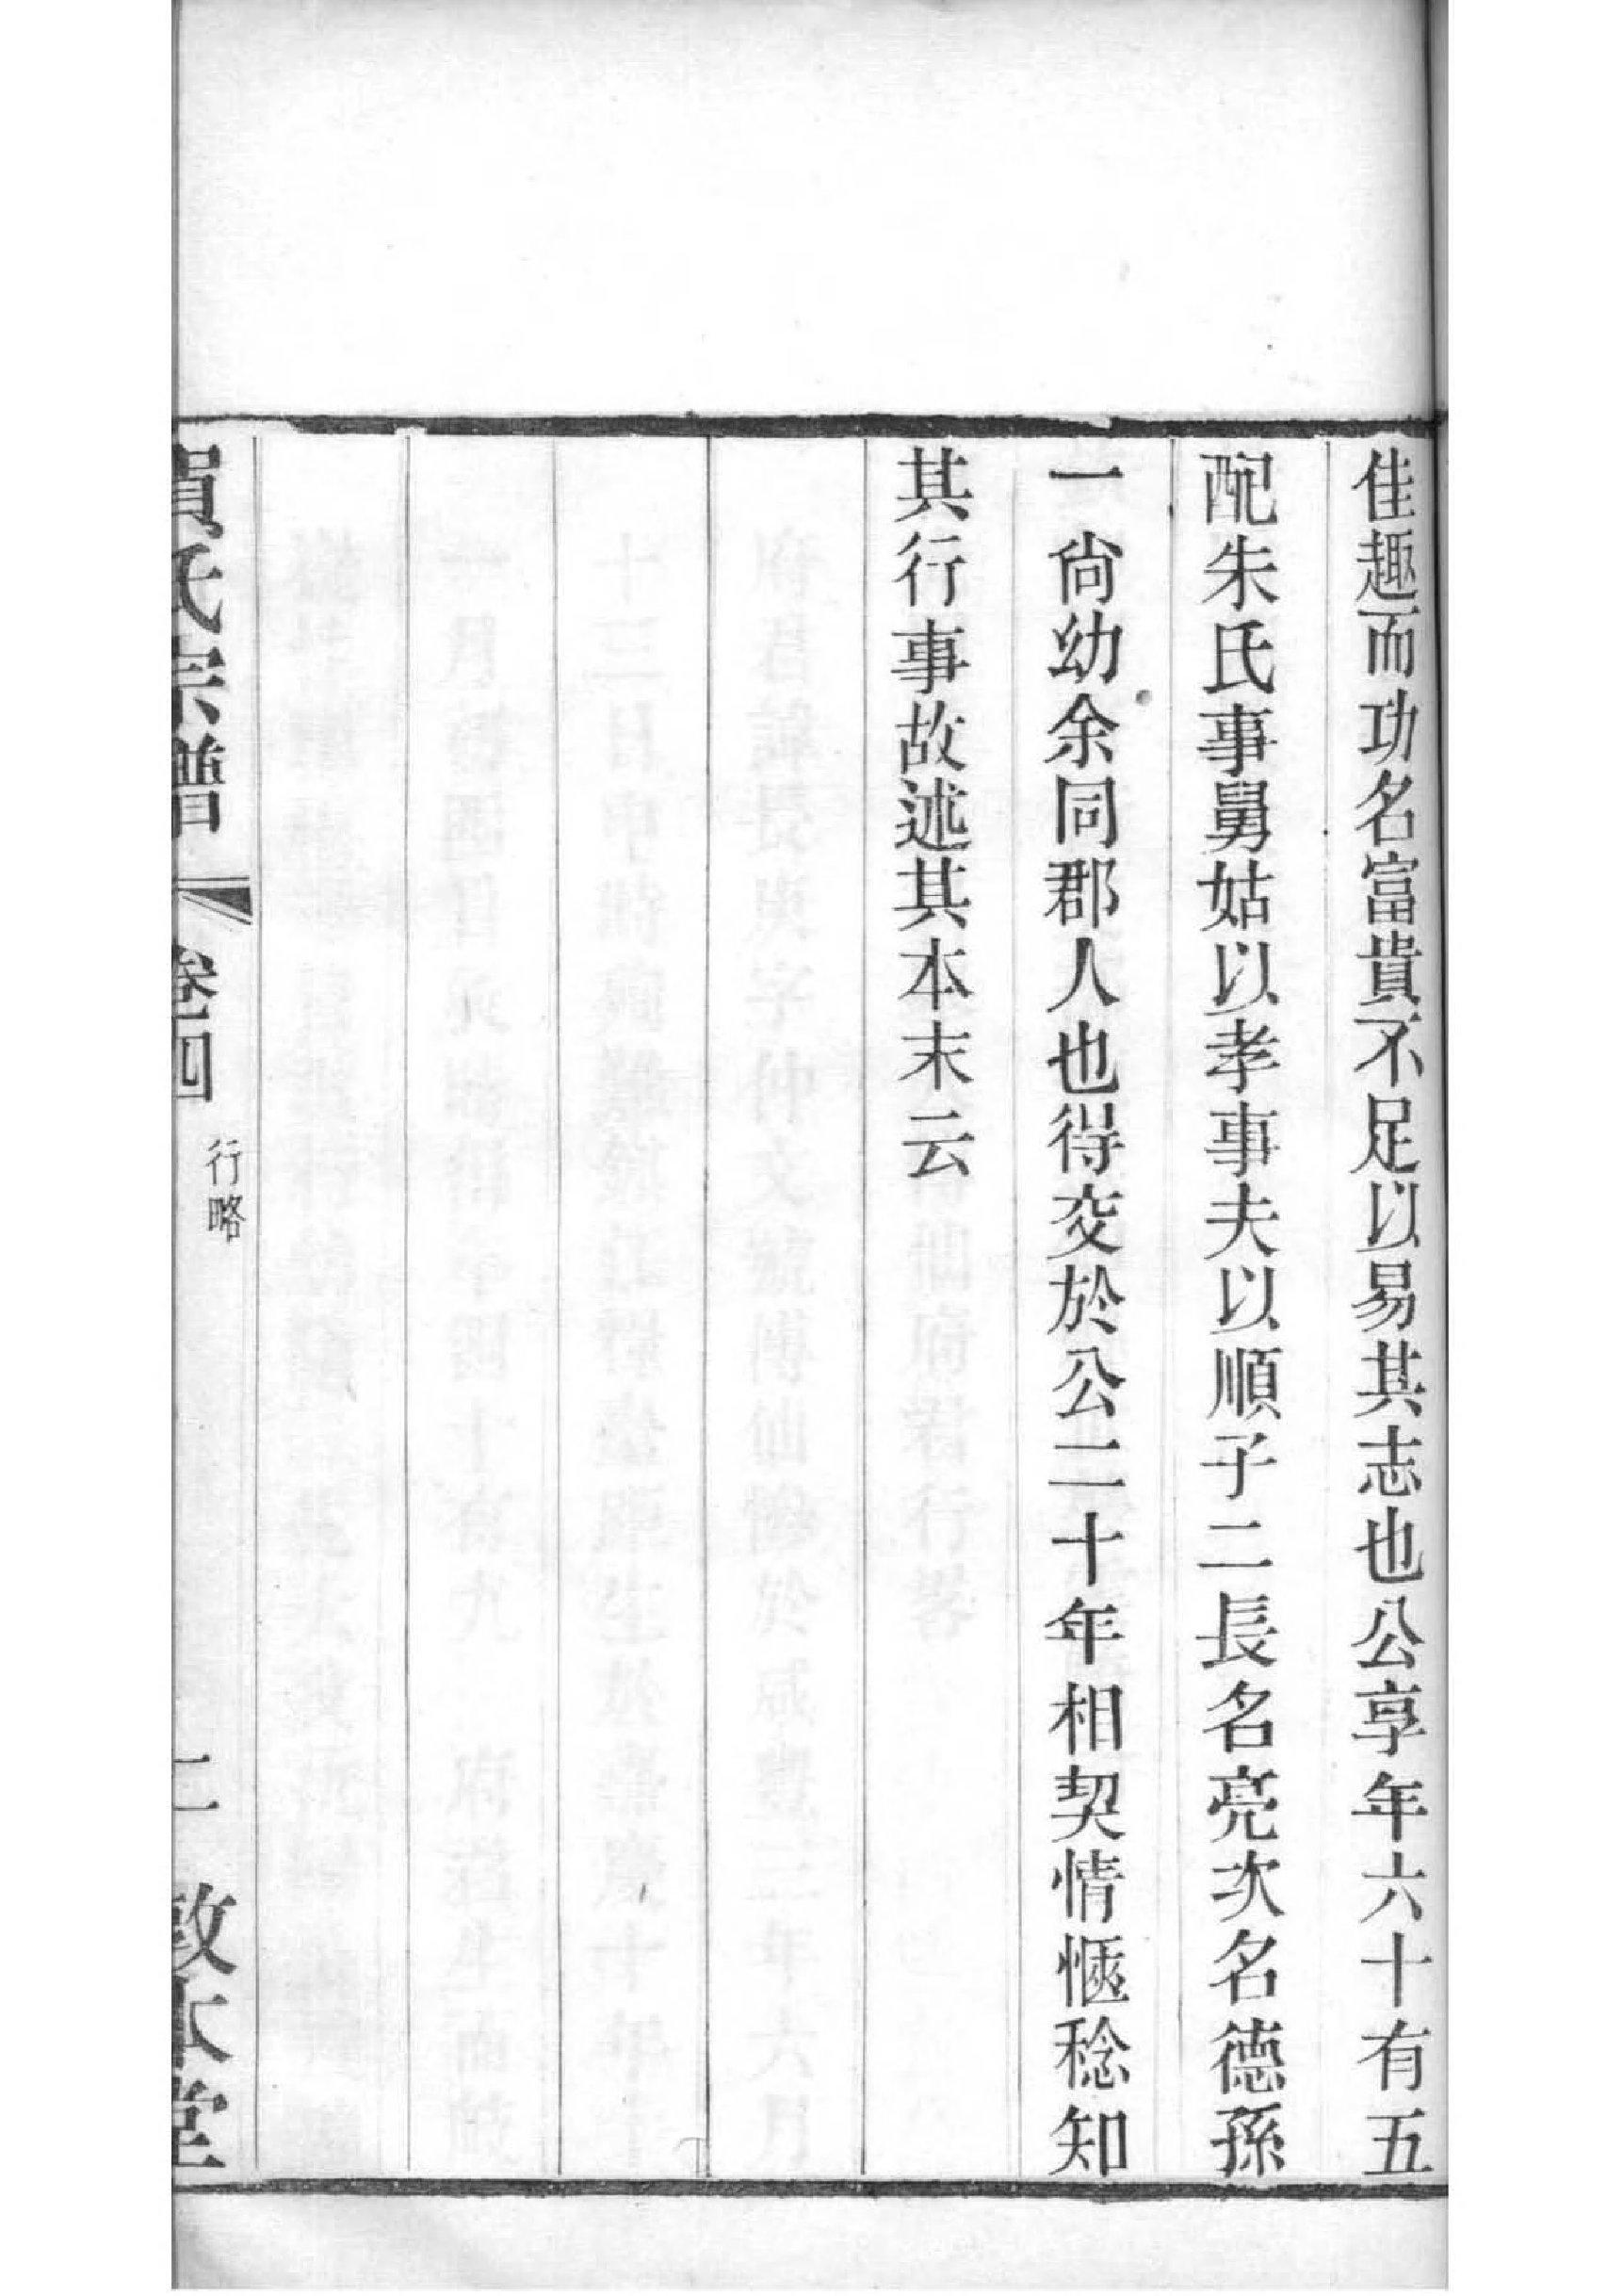 佳趣而功名富貴不足以易其志也公享年六十有五
配朱氏事舅姑以孝事夫以順子二長名亮次名德孫
一尙幼余同郡人也得交於公二十年相契情愜稔知
其行事故述其本末云
氏宗譜
卷四
行略
二
敦本堂